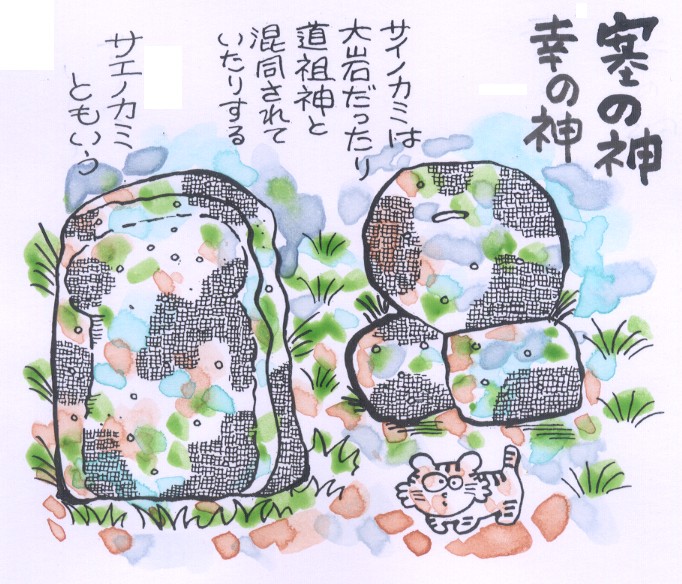 塞の神
幸の神
サイノカミは
大岩だったり
道祖神と
混同されて
いたりする
サエノカミ
ともいう